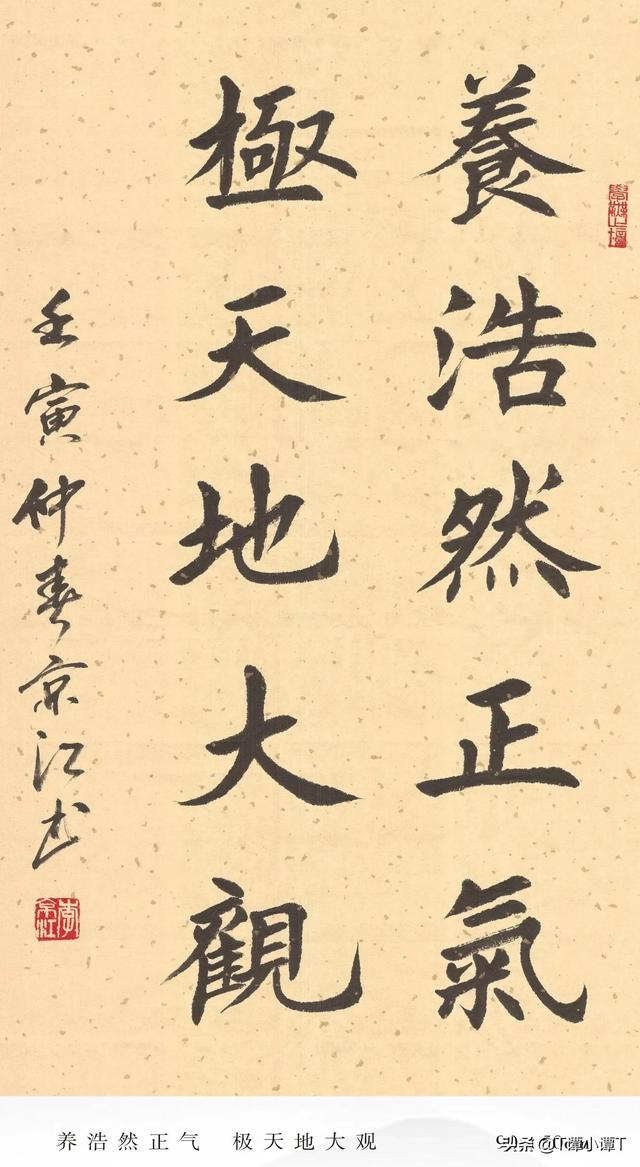 養浩然正氣
極天地大觀
壬寅仲春京江书
李京江
养浩然正气 极天地大观
头条